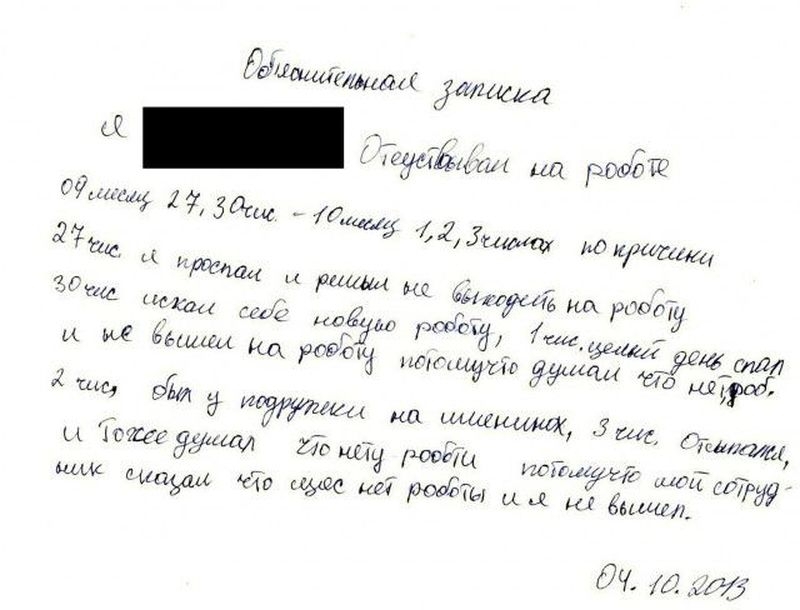 Обьяснительная записка
Я Отсуствывал на роботе
09 месяц 27, 30 чис. - 10 месяц 1, 2, 3 числах по причини
27 чис. я проспал и решыл не выходеть на роботу
30 чис искал себе новую роботу, 1 чис. целый день спал
и не вышел на роботу потомучто думал что нет роб.
2 чис, был у подружеки на имининах, 3 чис. Отсыпался,
и Тоже думал что нету роботи потомучто мой сотруд-
ник скацал что щяс нет роботы и я не вышел.
04.10.2013